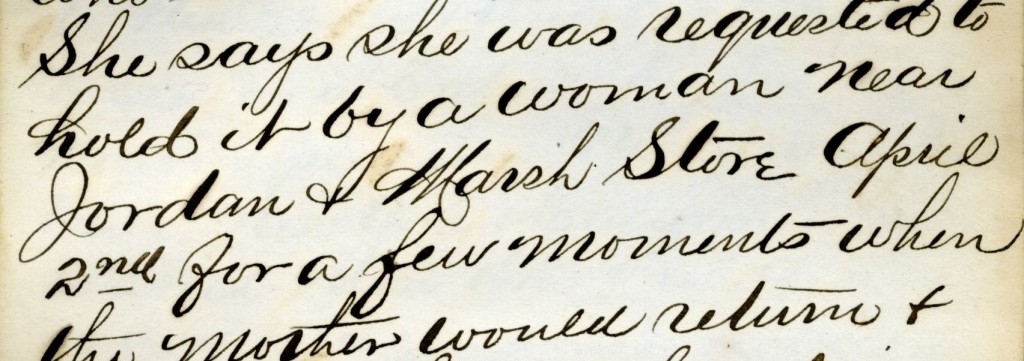 She says she was requested to
hold it by a woman near
Jordan & Marsh Store April
2nd for a few moments when
the Mother would return &